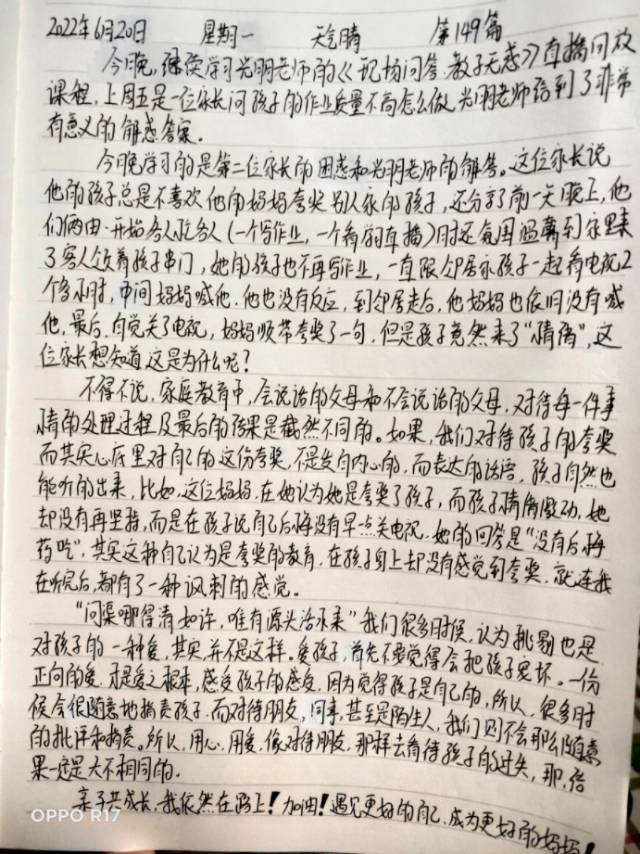 2022年6月20日 星期一 天气晴 第149篇
今晚,继续学习光明老师的《现场问答·教子无惑》直播回放
课程,上周五是一位家长问孩子的作业质量不高怎么做,光明老师给到了非常
有意义的解惑答案。
今晚学习的是第二位家长的困惑和光明老师的解答。这位家长说
他的孩子总是不喜欢他的妈妈夸奖别人家的孩子,还分享了前一天晚上,他
们俩由一开始各人忙各人(一个写作业,一个看 直播)时还氛围温馨到家里来
了客人领着孩子串门,她的孩子也不再写作业,一直跟邻居家孩子一起看电视2
个多小时,中间妈妈喊他,他也没有反应,到邻居走后,他妈妈也依旧没有喊
他,最后,自觉关了电视,妈妈顺带夸奖了一句,但是孩子竟然来了"情绪",这
位家长想知道这是为什么呢?
不得不说,家庭教育中,会说话的父母和不会说话的父母,对待每一件事
情的处理过程及最后的效果是截然不同的。如果,我们对待孩子的夸奖
而其实心底里对自己的这份夸奖,不是发自内心的,而表达的话语,孩子自然也
能听的出来,比如,这位妈妈,在她认为她是夸奖了孩子,而孩子情绪激动,她
却没有再坚持,而是在孩子说自己后悔没有早一点关电视,她的回答是"没有后悔
药吃",其实这种自己认为是夸奖的教育,在孩子身上却没有感觉到夸奖,就连我
在听完后,都有了一种讽刺的感觉。
"问渠哪得清如许,唯有源头活水来"我们很多时候,认为挑剔也是
对孩子的一种爱,其实,并不是这样。爱孩子,首先不要觉得会把孩子宠坏。一份
正向的爱,才是爱之根本,感受孩子的感受,因为觉得孩子是自己的,所以,很多时
候会很随意地指责孩子,而对待朋友,同事,甚至是陌生人,我们则不会那么随意
的批评和指责。所以,用心,用爱,像对待朋友,那样去看待孩子的过失,那,结
果一定是大不相同的。
亲子共成长,我依然在路上!加油!遇见更好的自己,成为更好的妈妈!
OPPO R17